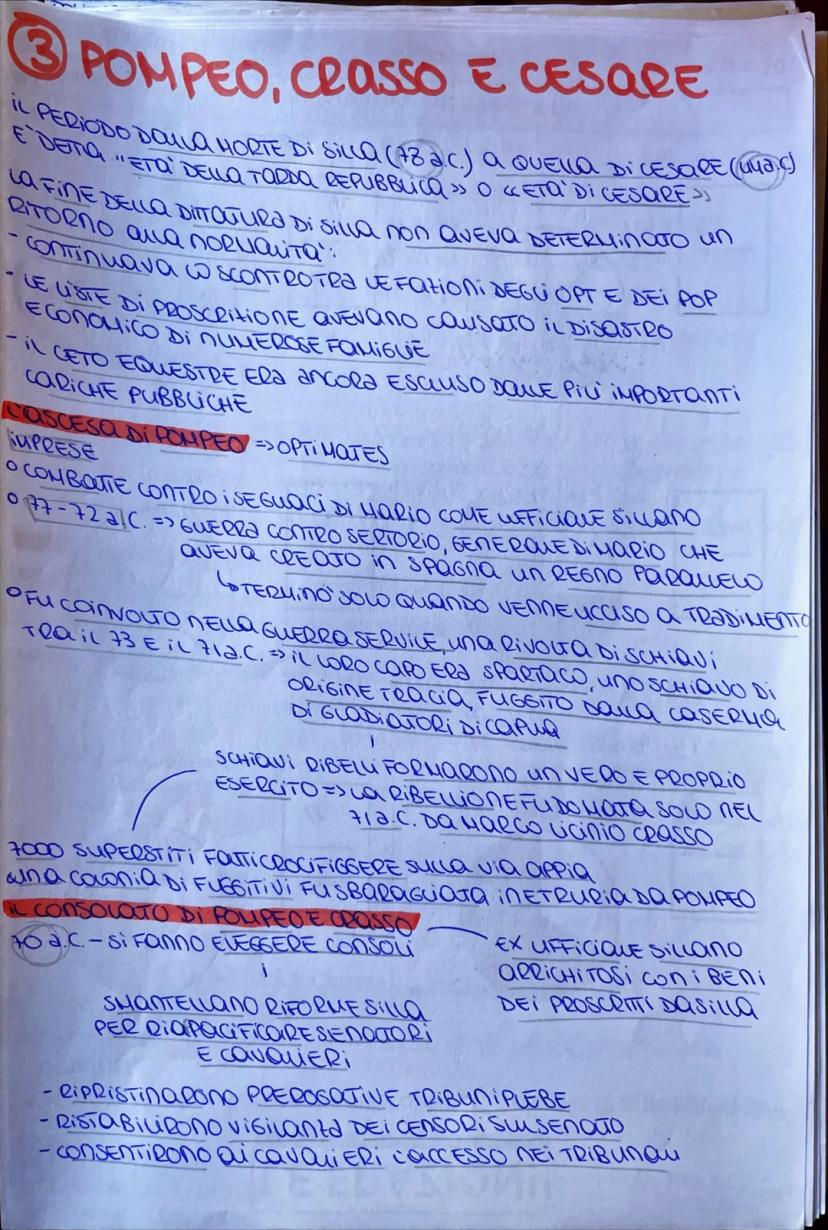 3 POMPEO, CRASSO E CESARE
IL PERIODO DALLA MORTE DI SILLA (78 a.C.) A QUELLA DI CESARE (44 a.C)
E' DETTA "ETA' DELLA TARDA REPUBBLICA» O «ETA' DI CESARE»
LA FINE DELLA DITTATURA DI SILLA NON AVEVA DETERMINATO UN
RITORNO ALLA NORMALITA':
- CONTINUAVA LO SCONTRO TRA LE FAZIONI DEGLI OPT E DEI POP
- LE LISTE DI PROSCRIZIONE AVEVANO CAUSATO IL DISASTRO
ECONOMICO DI NUMEROSE FAMIGLIE
- IL CETO EQUESTRE ERA ANCORA ESCLUSO DALLE PIU' IMPORTANTI
CARICHE PUBBLICHE
L'ASCESA DI POMPEO => OPTIMATES
IMPRESE
o COMBATTE CONTRO I SEGUACI DI MARIO COME UFFICIALE SILLANO
o 77-72 a.C. => GUERRA CONTRO SERTORIO, GENERALE DI MARIO CHE
AVEVA CREATO IN SPAGNA UN REGNO PARALLELO
↳ TERMINO' SOLO QUANDO VENNE UCCISO A TRADIMENTO
o FU COINVOLTO NELLA GUERRA SERVILE, UNA RIVOLTA DI SCHIAVI
TRA IL 73 E IL 71 a.C. => IL LORO CAPO ERA SPARTACO, UNO SCHIAVO DI
ORIGINE TRACIA, FUGGITO DALLA CASERMA
DI GLADIATORI DI CAPUA
SCHIAVI RIBELLI FORMARONO UN VERO E PROPRIO
ESERCITO => LA RIBELLIONE FU DOMATA SOLO NEL
71 a.C. DA MARCO LICINIO CRASSO
7000 SUPERSTITI FATTI CROCIFIGGERE SULLA VIA APPIA
UNA COLONIA DI FUGGITIVI FU SBARAGLIATA IN ETRURIA DA POMPEO
IL CONSOLATO DI POMPEO E CRASSO
70 a.C. - SI FANNO ELEGGERE CONSOLI
EX UFFICIALE SILLANO
ARRICHITOSI CON I BENI
DEI PROSCRITTI DA SILLA
SMANTELLANO RIFORME SILLA
PER RIAPACIFICARE SENATORI
E CAVALIERI
- RIPRISTINARONO PREROGATIVE TRIBUNI PLEBE
- RISTABILIRONO VIGILANZA DEI CENSORI SUL SENATO
- CONSENTIRONO AI CAVALIERI L'ACCESSO NEI TRIBUNALI